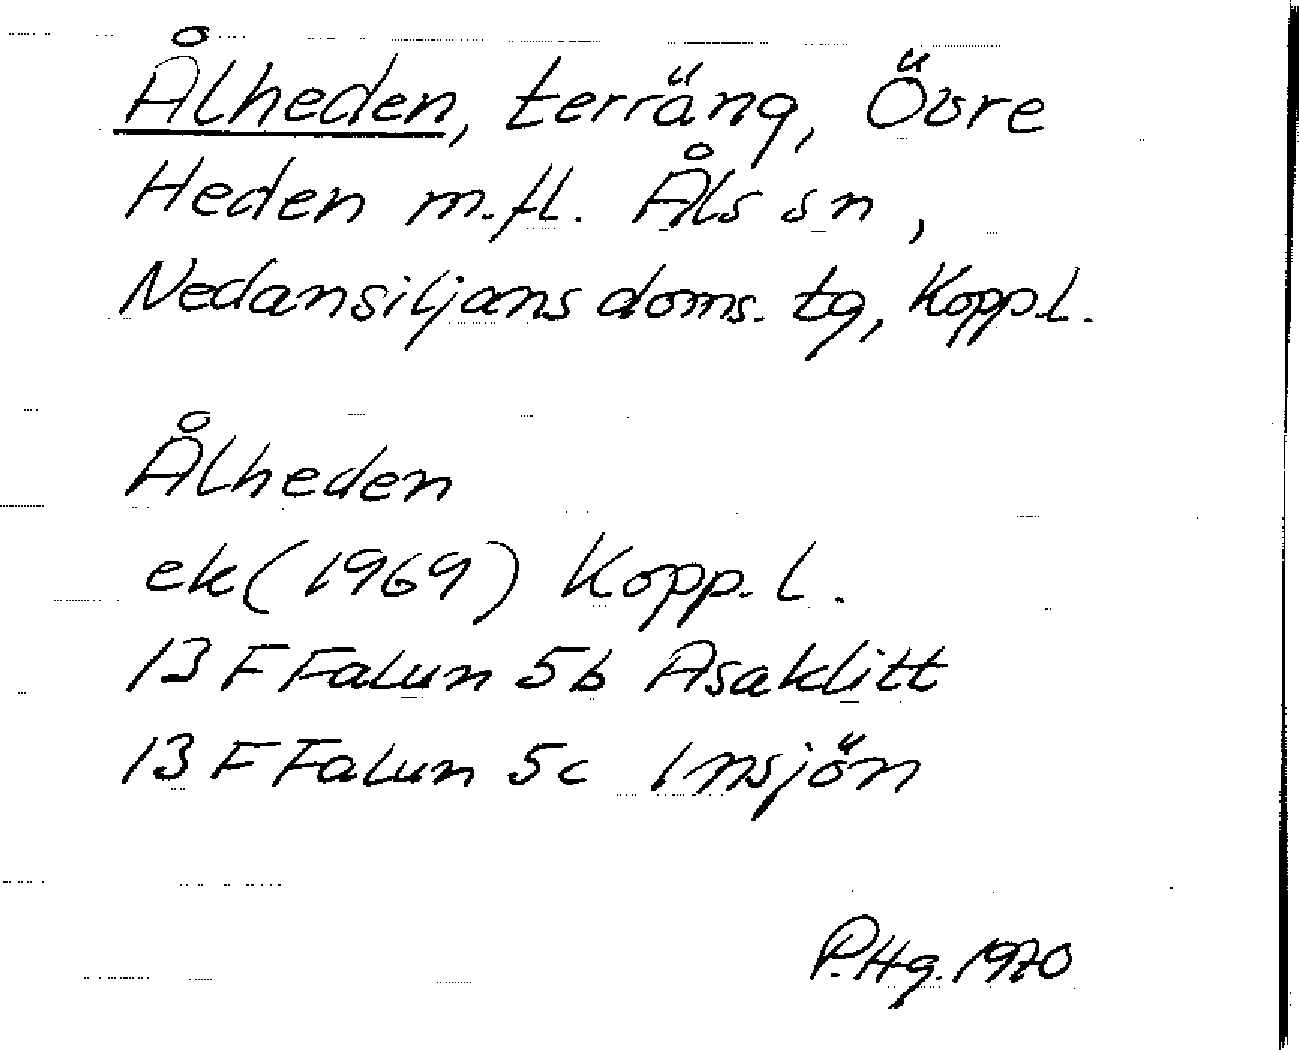 Ålheden, terräng, Övre
Heden m.fl. Åls sn,
Nedansiljans doms. tg, Kopp.l.
Ålheden
ek (1969) Kopp. l.
13 F Falun 5b Asaklitt
13 F Falun 5c Insjön
P.Hg. 1970